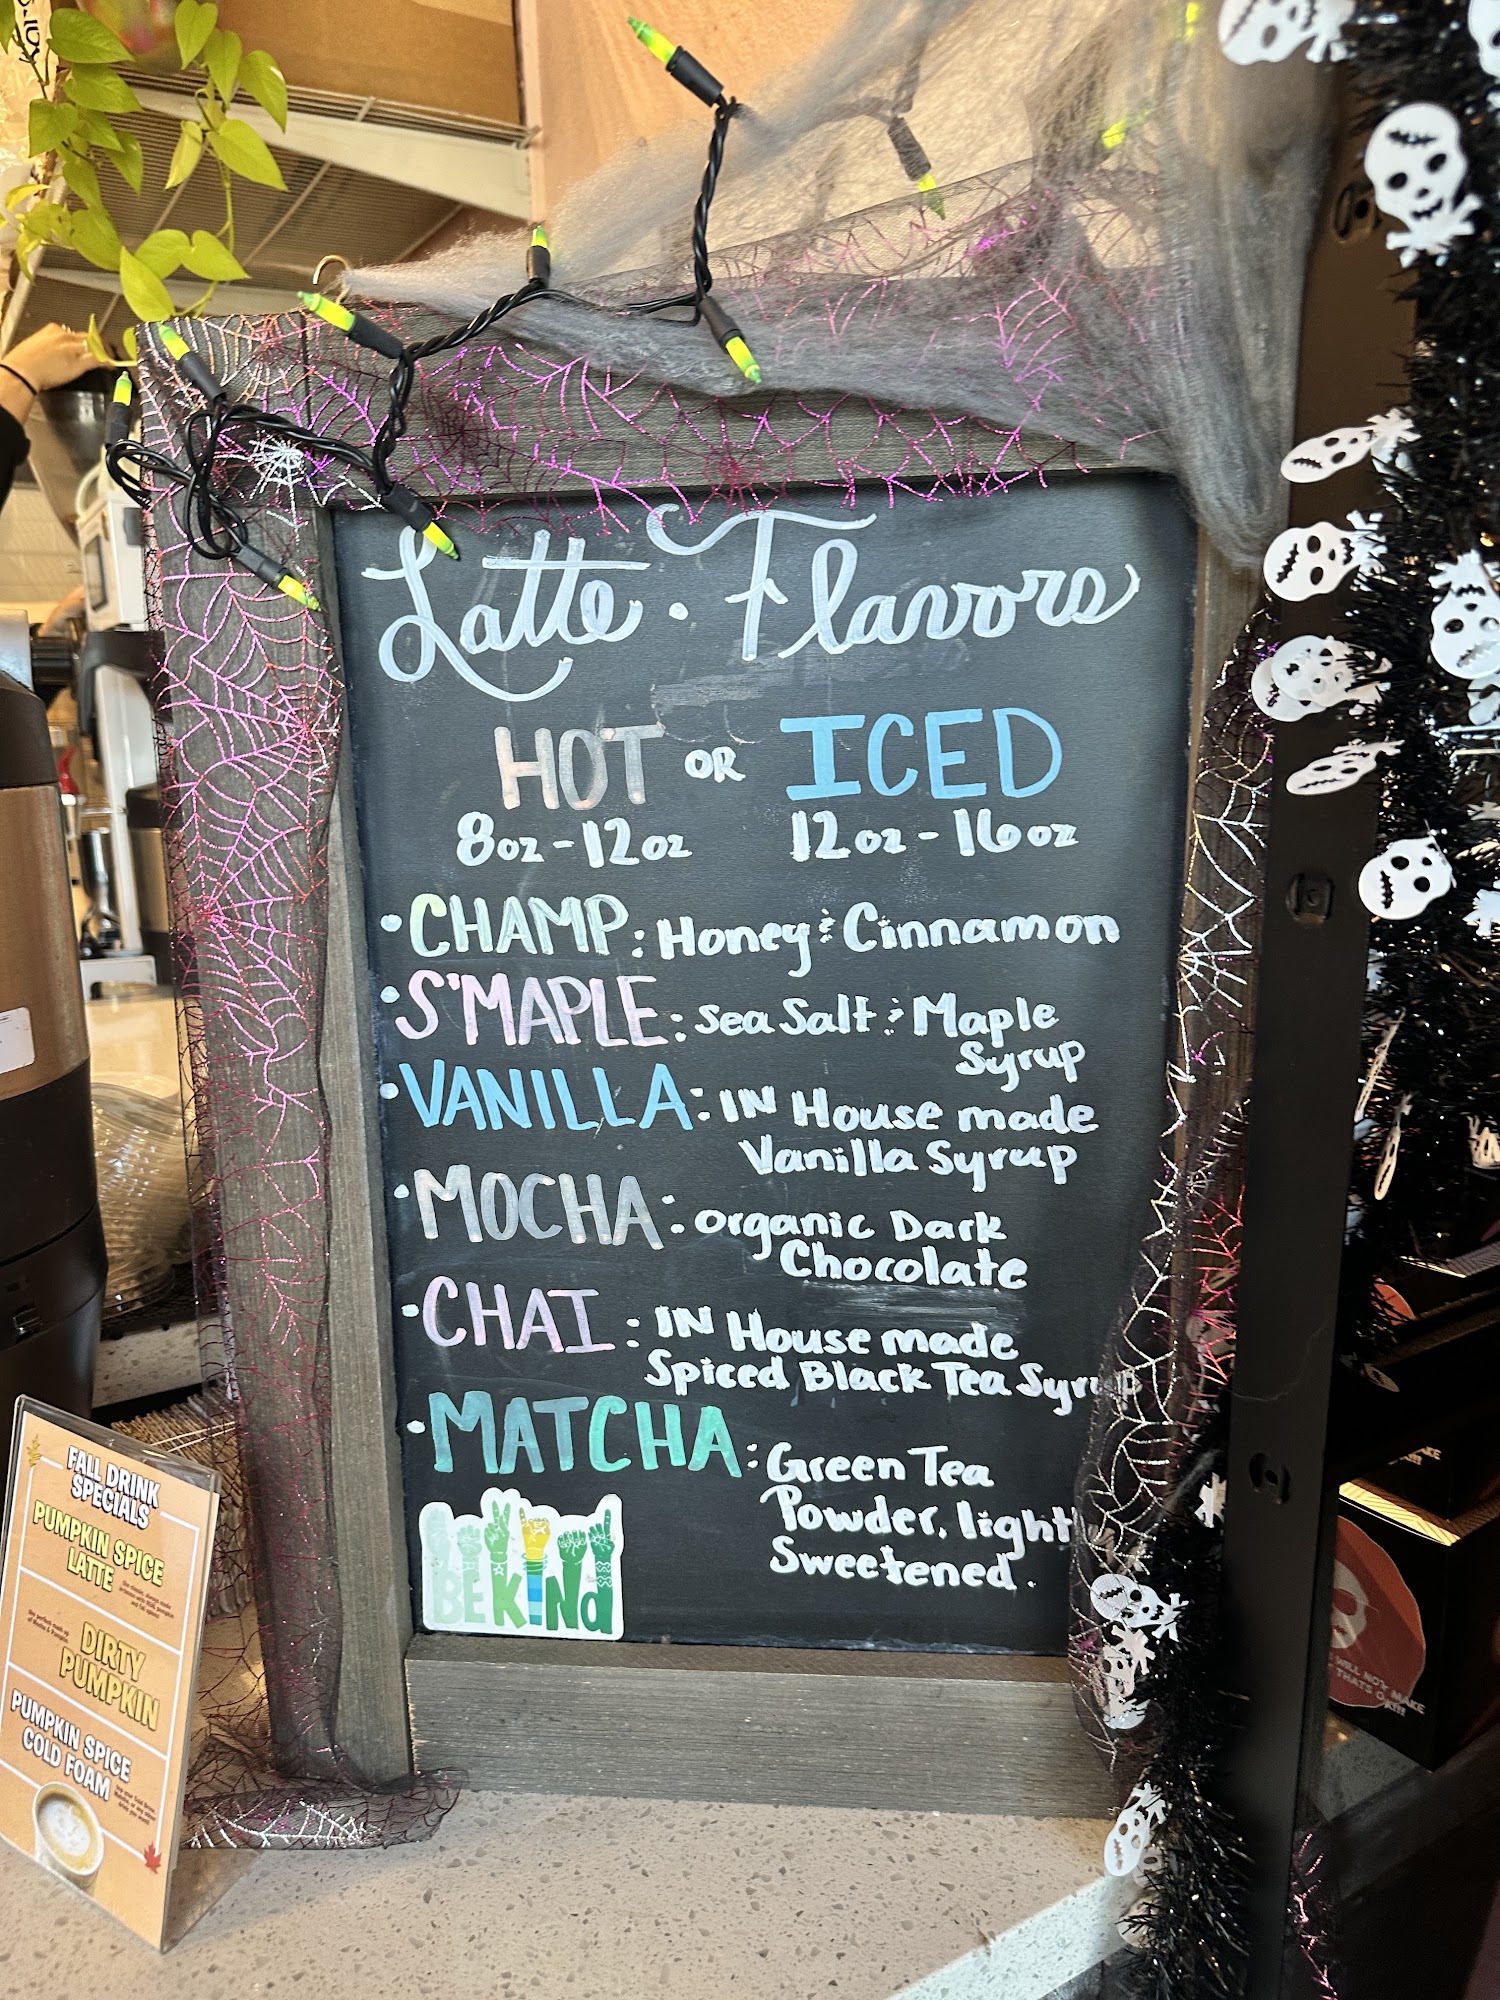 Latte · Flavors
HOT OR ICED
8oz-12oz 12oz-16oz
• CHAMP: Honey & Cinnamon
• S'MAPLE: Sea Salt & Maple
Syrup
• VANILLA: IN House made
Vanilla Syrup
• MOCHA: Organic Dark
Chocolate
• CHAI: IN House made
Spiced Black Tea Syrup
• MATCHA: Green Tea
Powder, light
Sweetened.
BE KINd
FALL DRINK
SPECIALS
PUMPKIN SPICE
LATTE
DIRTY
PUMPKIN
PUMPKIN SPICE
COLD FOAM
WILL NOT MAKE
THAT'S OK!!!